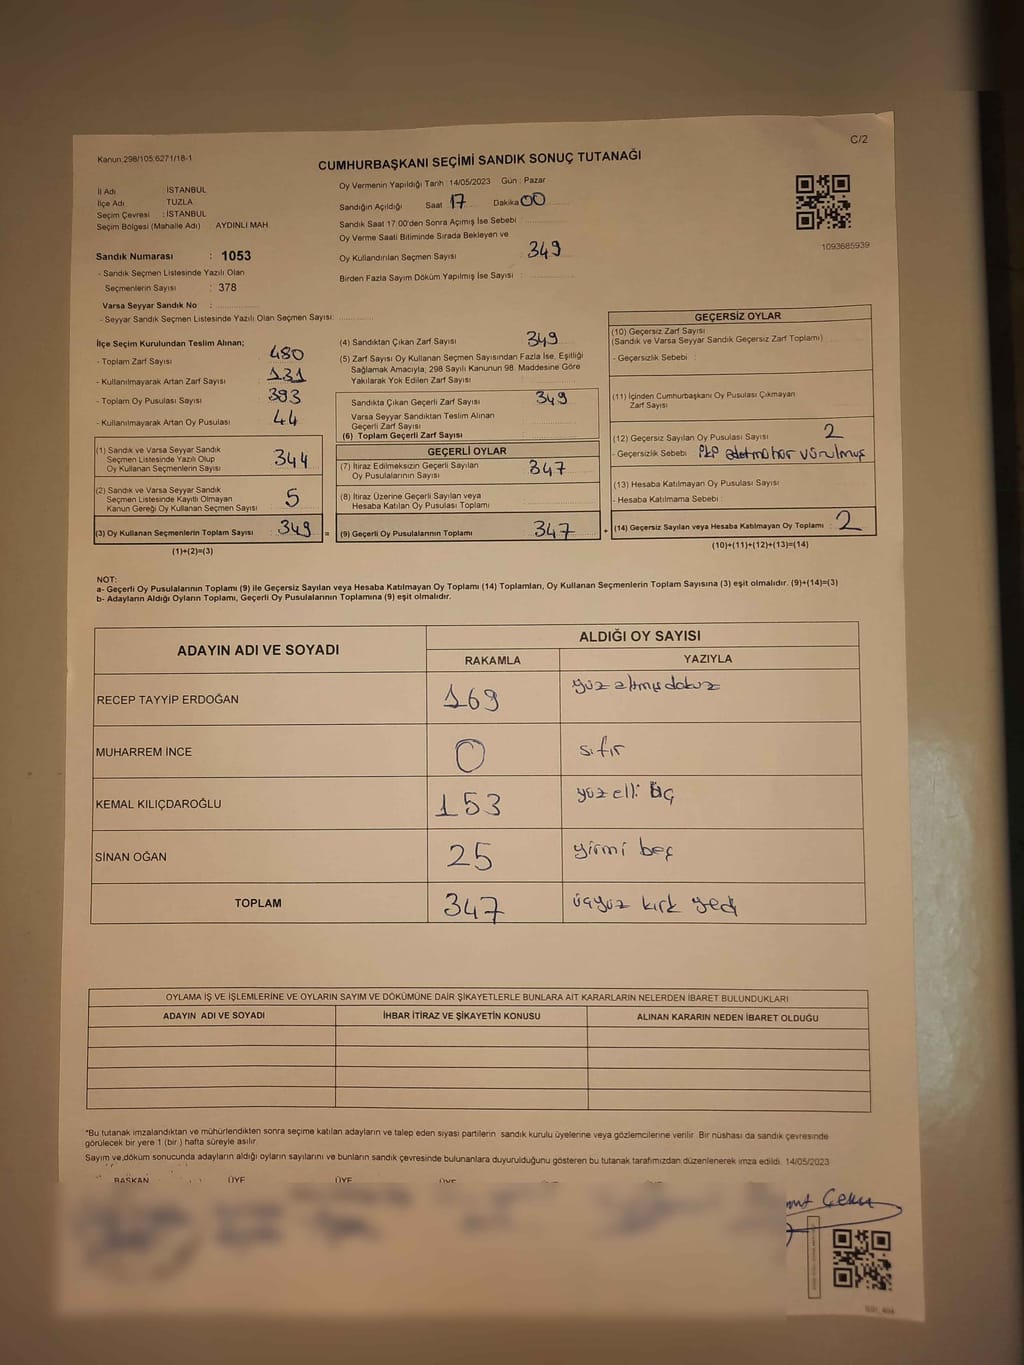 C/2
Kanun:298/105;6271/18-1
CUMHURBAŞKANI SEÇİMİ SANDIK SONUÇ TUTANAĞI
İl Adı : İSTANBUL
İlçe Adı : TUZLA
Seçim Çevresi : İSTANBUL
Seçim Bölgesi (Mahalle Adı) AYDINLI MAH.
Oy Vermenin Yapıldığı Tarih : 14/05/2023 Gün : Pazar
Sandığın Açıldığı Saat 17 Dakika 00
Sandık Saat 17:00'den Sonra Açımış İse Sebebi :
Oy Verme Saati Bitiminde Sırada Bekleyen ve
Oy Kullandırılan Seçmen Sayısı : 349
Birden Fazla Sayım Döküm Yapılmış İse Sayısı :
1093685939
Sandık Numarası : 1053
- Sandık Seçmen Listesinde Yazılı Olan
Seçmenlerin Sayısı : 378
Varsa Seyyar Sandık No :
- Seyyar Sandık Seçmen Listesinde Yazılı Olan Seçmen Sayısı:
İlçe Seçim Kurulundan Teslim Alınan;
- Toplam Zarf Sayısı : 480
- Kullanılmayarak Artan Zarf Sayısı : 131
- Toplam Oy Pusulası Sayısı : 393
- Kullanılmayarak Artan Oy Pusulası : 44
(1) Sandık ve Varsa Seyyar Sandık
Seçmen Listesinde Yazılı Olup
Oy Kullanan Seçmenlerin Sayısı : 344
(2) Sandık ve Varsa Seyyar Sandık
Seçmen Listesinde Kayıtlı Olmayan
Kanun Gereği Oy Kullanan Seçmen Sayısı : 5
(3) Oy Kullanan Seçmenlerin Toplam Sayısı : 349
(1)+(2)=(3)
(4) Sandıktan Çıkan Zarf Sayısı : 349
(5) Zarf Sayısı Oy Kullanan Seçmen Sayısından Fazla İse, Eşitliği
Sağlamak Amacıyla; 298 Sayılı Kanunun 98. Maddesine Göre
Yakılarak Yok Edilen Zarf Sayısı :
Sandıkta Çıkan Geçerli Zarf Sayısı : 349
Varsa Seyyar Sandıktan Teslim Alınan
Geçerli Zarf Sayısı :
(6) Toplam Geçerli Zarf Sayısı :
GEÇERLİ OYLAR
(7) İtiraz Edilmeksizin Geçerli Sayılan
Oy Pusulalarının Sayısı : 347
(8) İtiraz Üzerine Geçerli Sayılan veya
Hesaba Katılan Oy Pusulası Toplamı :
= (9) Geçerli Oy Pusulalarının Toplamı : 347
GEÇERSİZ OYLAR
(10) Geçersiz Zarf Sayısı
(Sandık ve Varsa Seyyar Sandık Geçersiz Zarf Toplamı) :
- Geçersizlik Sebebi :
(11) İçinden Cumhurbaşkanı Oy Pusulası Çıkmayan
Zarf Sayısı :
(12) Geçersiz Sayılan Oy Pusulası Sayısı : 2
- Geçersizlik Sebebi : vurulmuş
(13) Hesaba Katılmayan Oy Pusulası Sayısı :
- Hesaba Katılmama Sebebi :
+ (14) Geçersiz Sayılan veya Hesaba Katılmayan Oy Toplamı : 2
(10)+(11)+(12)+(13)=(14)
NOT:
a- Geçerli Oy Pusulalarının Toplamı (9) ile Geçersiz Sayılan veya Hesaba Katılmayan Oy Toplamı (14) Toplamları, Oy Kullanan Seçmenlerin Toplam Sayısına (3) eşit olmalıdır. (9)+(14)=(3)
b- Adayların Aldığı Oyların Toplamı, Geçerli Oy Pusulalarının Toplamına (9) eşit olmalıdır.
ADAYIN ADI VE SOYADI ALDIĞI OY SAYISI
RAKAMLA YAZIYLA
RECEP TAYYİP ERDOĞAN 169 yüz altmış dokuz
MUHARREM İNCE 0 sıfır
KEMAL KILIÇDAROĞLU 153 yüz elli üç
SİNAN OĞAN 25 yirmi beş
TOPLAM 347 üçyüz kırk yedi
OYLAMA İŞ VE İŞLEMLERİNE VE OYLARIN SAYIM VE DÖKÜMÜNE DAİR ŞİKAYETLERLE BUNLARA AİT KARARLARIN NELERDEN İBARET BULUNDUKLARI
ADAYIN ADI VE SOYADI İHBAR İTİRAZ VE ŞİKAYETİN KONUSU ALINAN KARARIN NEDEN İBARET OLDUĞU
*Bu tutanak imzalandıktan ve mühürlendikten sonra seçime katılan adayların ve talep eden siyasi partilerin sandık kurulu üyelerine veya gözlemcilerine verilir. Bir nüshası da sandık çevresinde
görülecek bir yere 1 (bir) hafta süreyle asılır.
Sayım ve döküm sonucunda adayların aldığı oyların sayılarını ve bunların sandık çevresinde bulunanlara duyurulduğunu gösteren bu tutanak tarafımızdan düzenlenerek imza edildi. 14/05/2023
BAŞKAN ÜYE ÜYE ÜYE